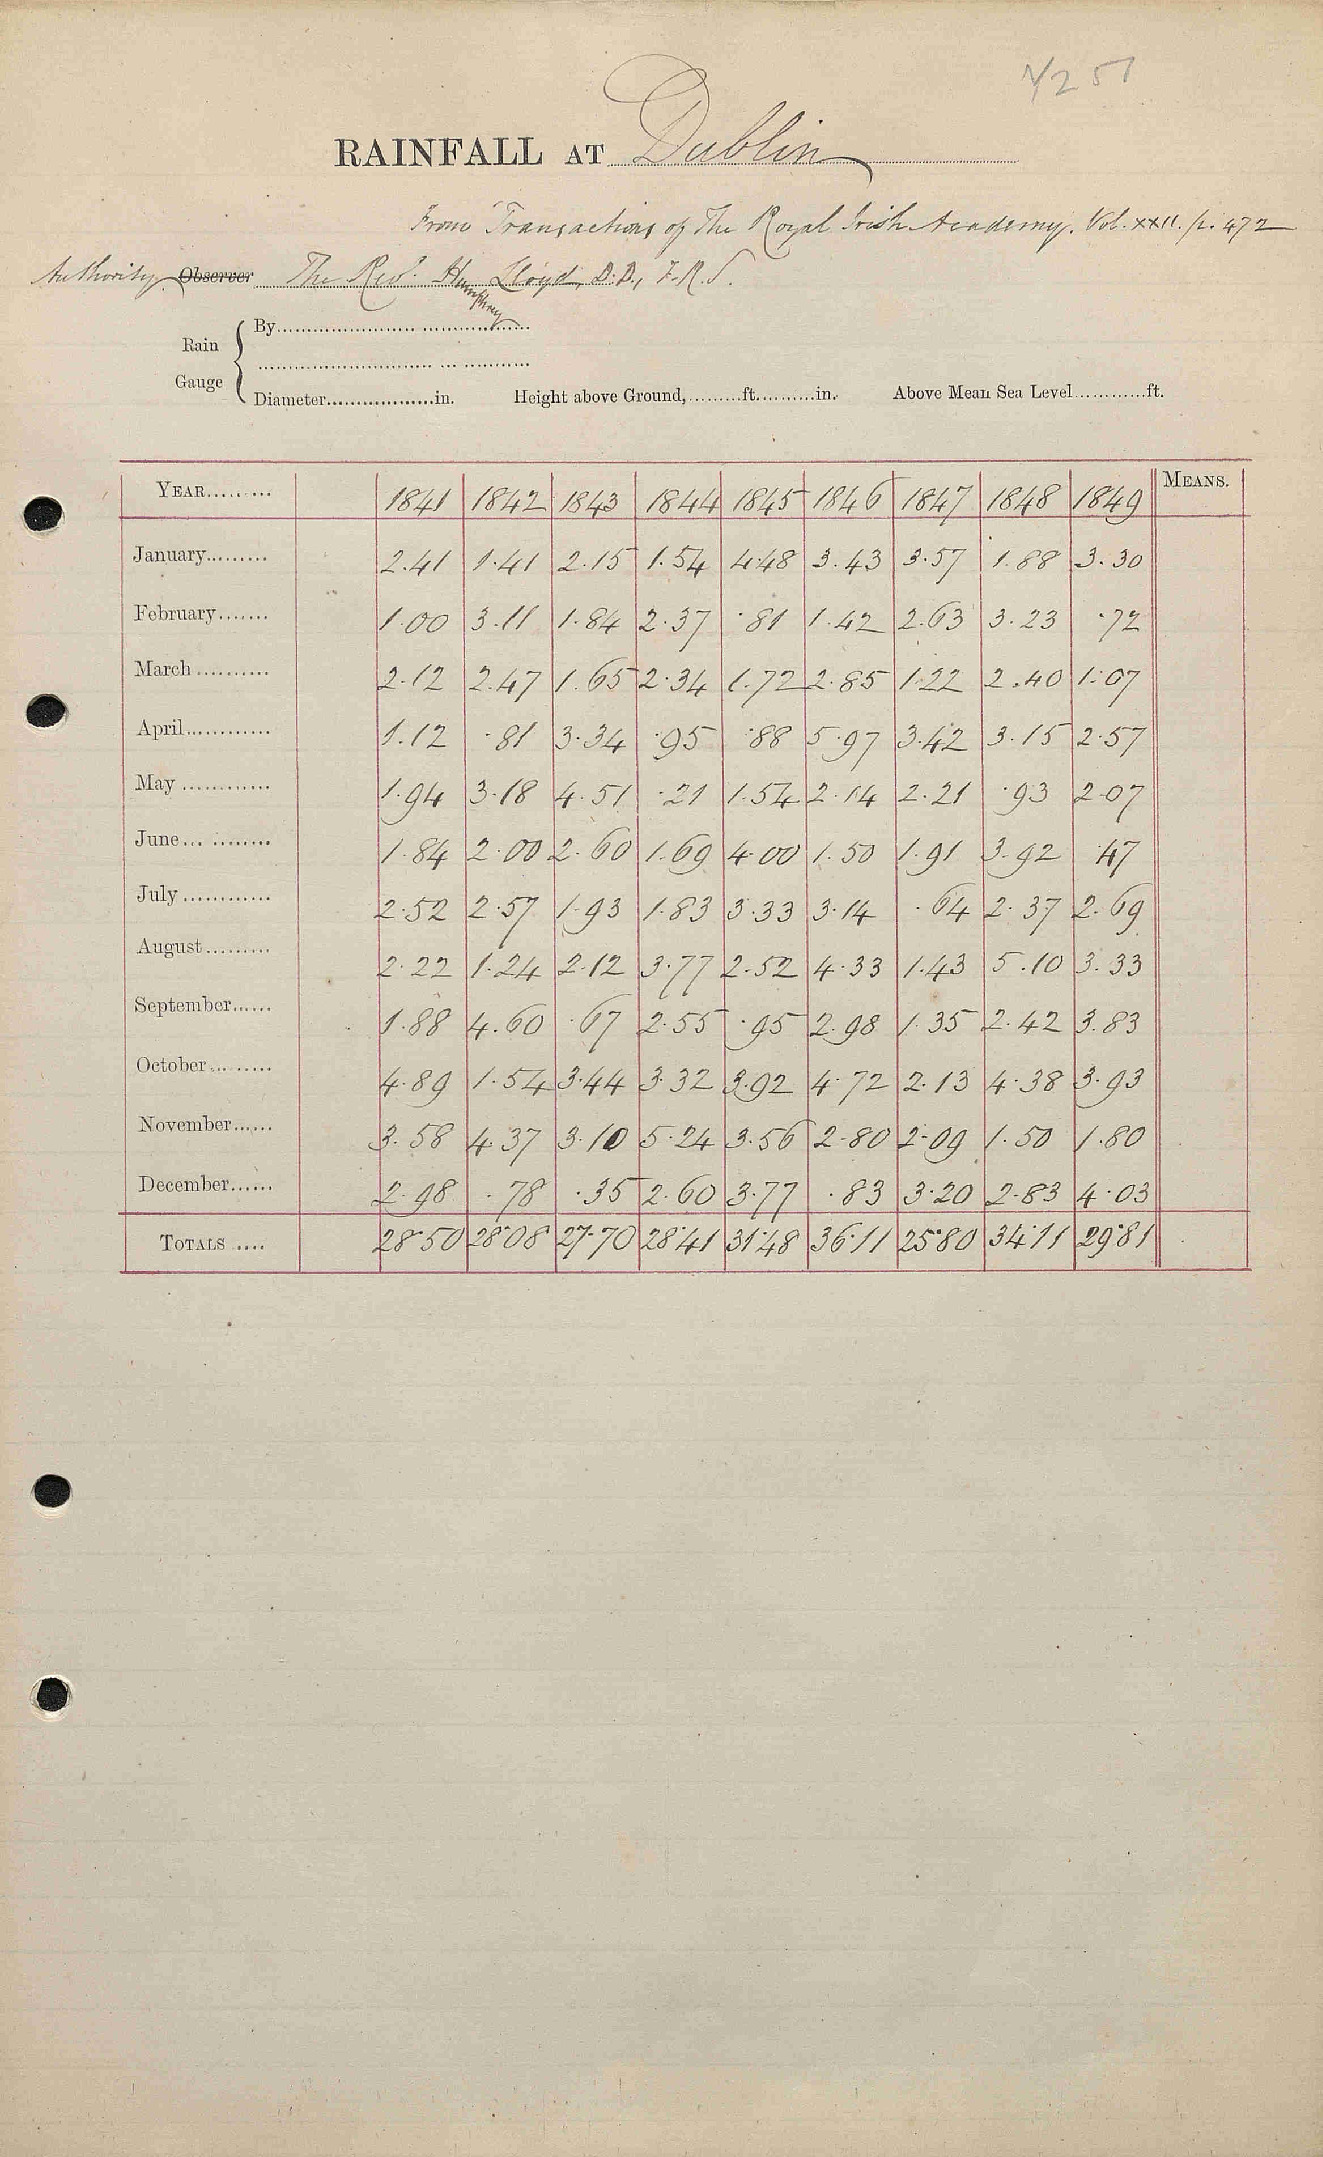 1/2 51
RAINFALL AT Dublin
From Transactions of The Royal Irish Academy. Vol. XXII. p. 472
Authority Observer The Rev. Humphrey Lloyd, D.D., F.R.S.
Rain Gauge { By
Diameter in. Height above Ground, ft. in. Above Mean Sea Level ft.
YEAR 1841 1842 1843 1844 1845 1846 1847 1848 1849 MEANS.
January 2.41 1.41 2.15 1.54 4.48 3.43 3.57 1.88 3.30
February 1.00 3.11 1.84 2.37 .81 1.42 2.63 3.23 .72
March 2.12 2.47 1.65 2.34 1.72 2.85 1.22 2.40 1.07
April 1.12 .81 3.34 .95 .88 5.97 3.42 3.15 2.57
May 1.94 3.18 4.51 .21 1.54 2.14 2.21 .93 2.07
June 1.84 2.00 2.60 1.69 4.00 1.50 1.91 3.92 .47
July 2.52 2.57 1.93 1.83 3.33 3.14 .64 2.37 2.69
August 2.22 1.24 2.12 3.77 2.52 4.33 1.43 5.10 3.33
September 1.88 4.60 .67 2.55 .95 2.98 1.35 2.42 3.83
October 4.89 1.54 3.44 3.32 3.92 4.72 2.13 4.38 3.93
November 3.58 4.37 3.10 5.24 3.56 2.80 2.09 1.50 1.80
December 2.98 .78 .35 2.60 3.77 .83 3.20 2.83 4.03
TOTALS 28.50 28.08 27.70 28.41 31.48 36.11 25.80 34.11 29.81